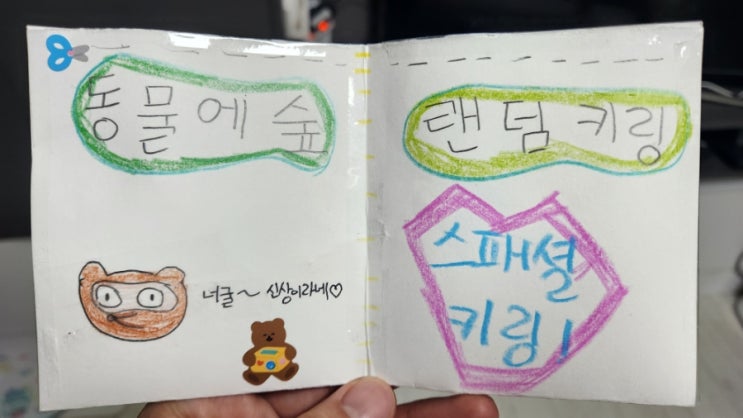 동물에숲
너굴~ 신상이라네♡
탠덤키링
스패셜
키링!